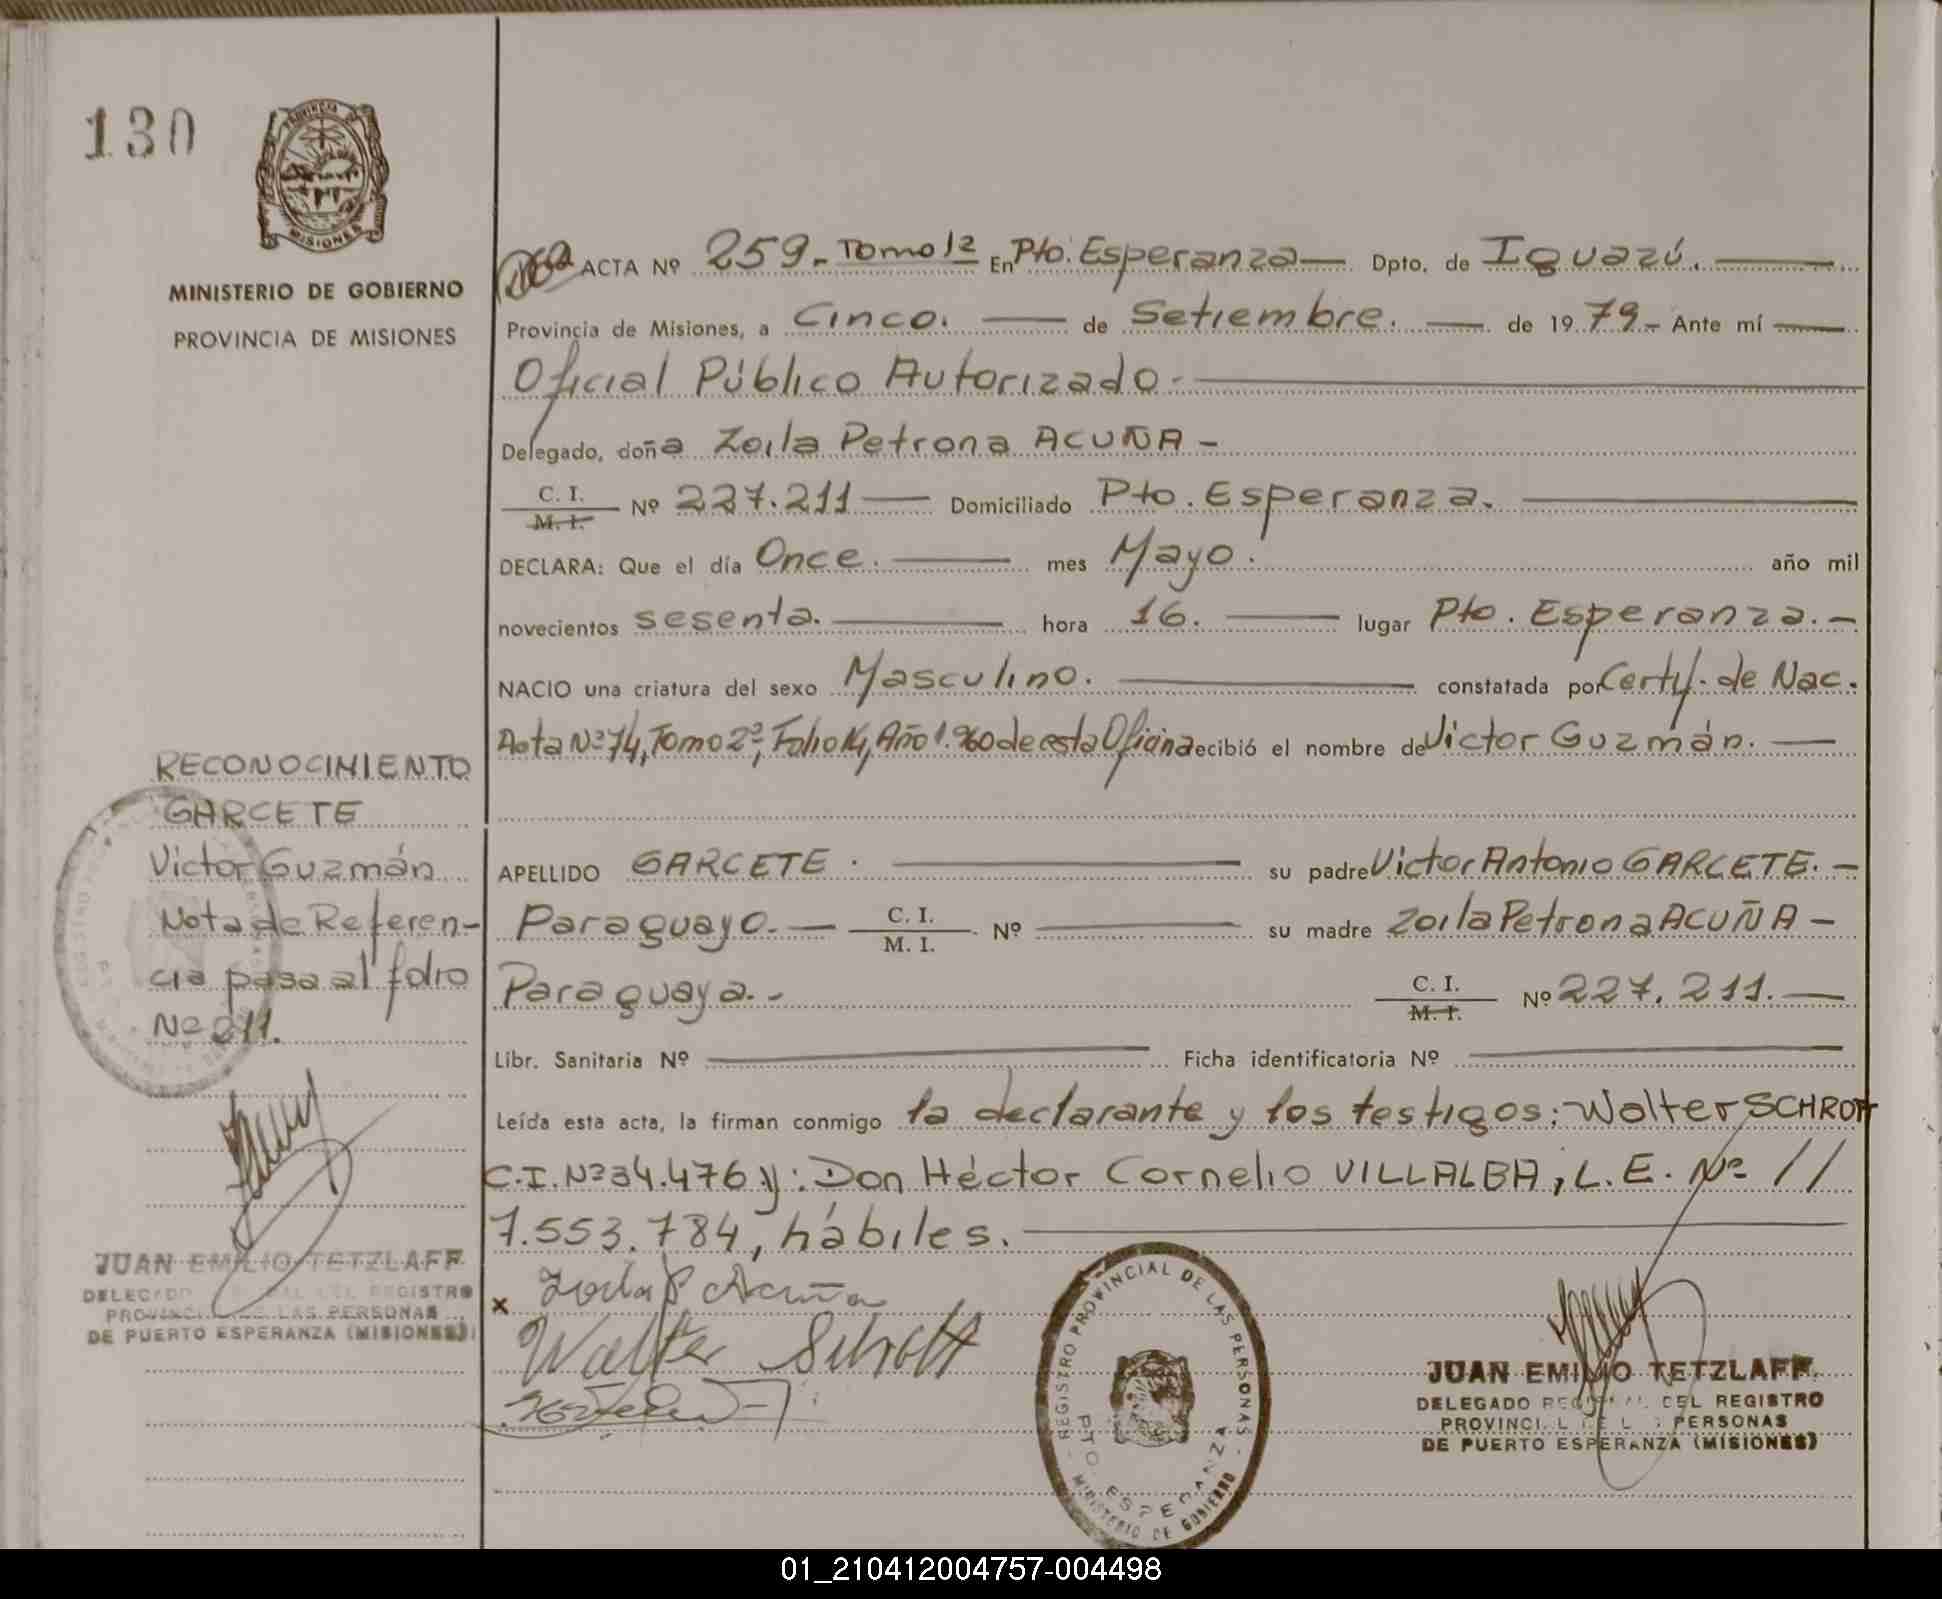 130
PROVINCIA DE
MISIONES
MINISTERIO DE GOBIERNO
PROVINCIA DE MISIONES
ACTA Nº 259.- Tomo 1º En Pto. Esperanza Dpto. de Iguazú.
Provincia de Misiones, a Cinco. de Setiembre. de 1979.- Ante mí
Oficial Público Autorizado.-
Delegado, doña Zoila Petrona ACUÑA -
C. I.
M. I. Nº 227.211 Domiciliado Pto. Esperanza.
DECLARA: Que el día Once. mes Mayo. año mil
novecientos sesenta. hora 16. lugar Pto. Esperanza.-
NACIO una criatura del sexo Masculino. constatada por Certf. de Nac.
Acta Nº 74, Tomo 2º, Folio 14, Año 1.960 de esta Oficina ecibió el nombre de Victor Guzmán.
APELLIDO GARCETE. su padre Victor Antonio GARCETE.-
Paraguayo.- C. I.
M. I. Nº su madre Zoila Petrona ACUÑA -
Paraguaya.- C. I.
M. I. Nº 227.211.
Libr. Sanitaria Nº Ficha identificatoria Nº
Leída esta acta, la firman conmigo la declarante y los testigos; Walter SCHROTT
C.I. Nº 34.476 y: Don Héctor Cornelio VILLALBA, L.E. Nº //
7.553.784, hábiles.
x Zoila P Acuña
Walter Schrott
REGISTRO PROVINCIAL DE LAS PERSONAS
PTO. ESPERANZA
MINISTERIO DE GOBIERNO
JUAN EMILIO TETZLAFF
DELEGADO DEL REGISTRO
PROVINCIAL DE LAS PERSONAS
DE PUERTO ESPERANZA (MISIONES)
RECONOCIMIENTO
GARCETE
Victor Guzmán
Nota de Referen-
cia pasa al folio
Nº 211.
JUAN EMILIO TETZLAFF
DELEGADO REGISTRO
PROVINCIAL DE LAS PERSONAS
DE PUERTO ESPERANZA (MISIONES)
01_210412004757-004498